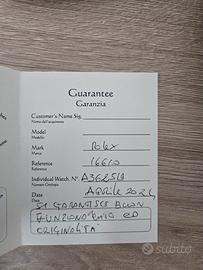 Guarantee
Garanzia
Customer's Name Sig.
Nome dell'acquirente
Model
Modello
Mark Rolex
Marca
Reference 16610
Referenza
Individual Watch. N°
Numero Orologio
Date APRILE
Data
SI GARANTISCE BUON
FUNZIONAMENTO ED
ORIGINALITÀ
subito